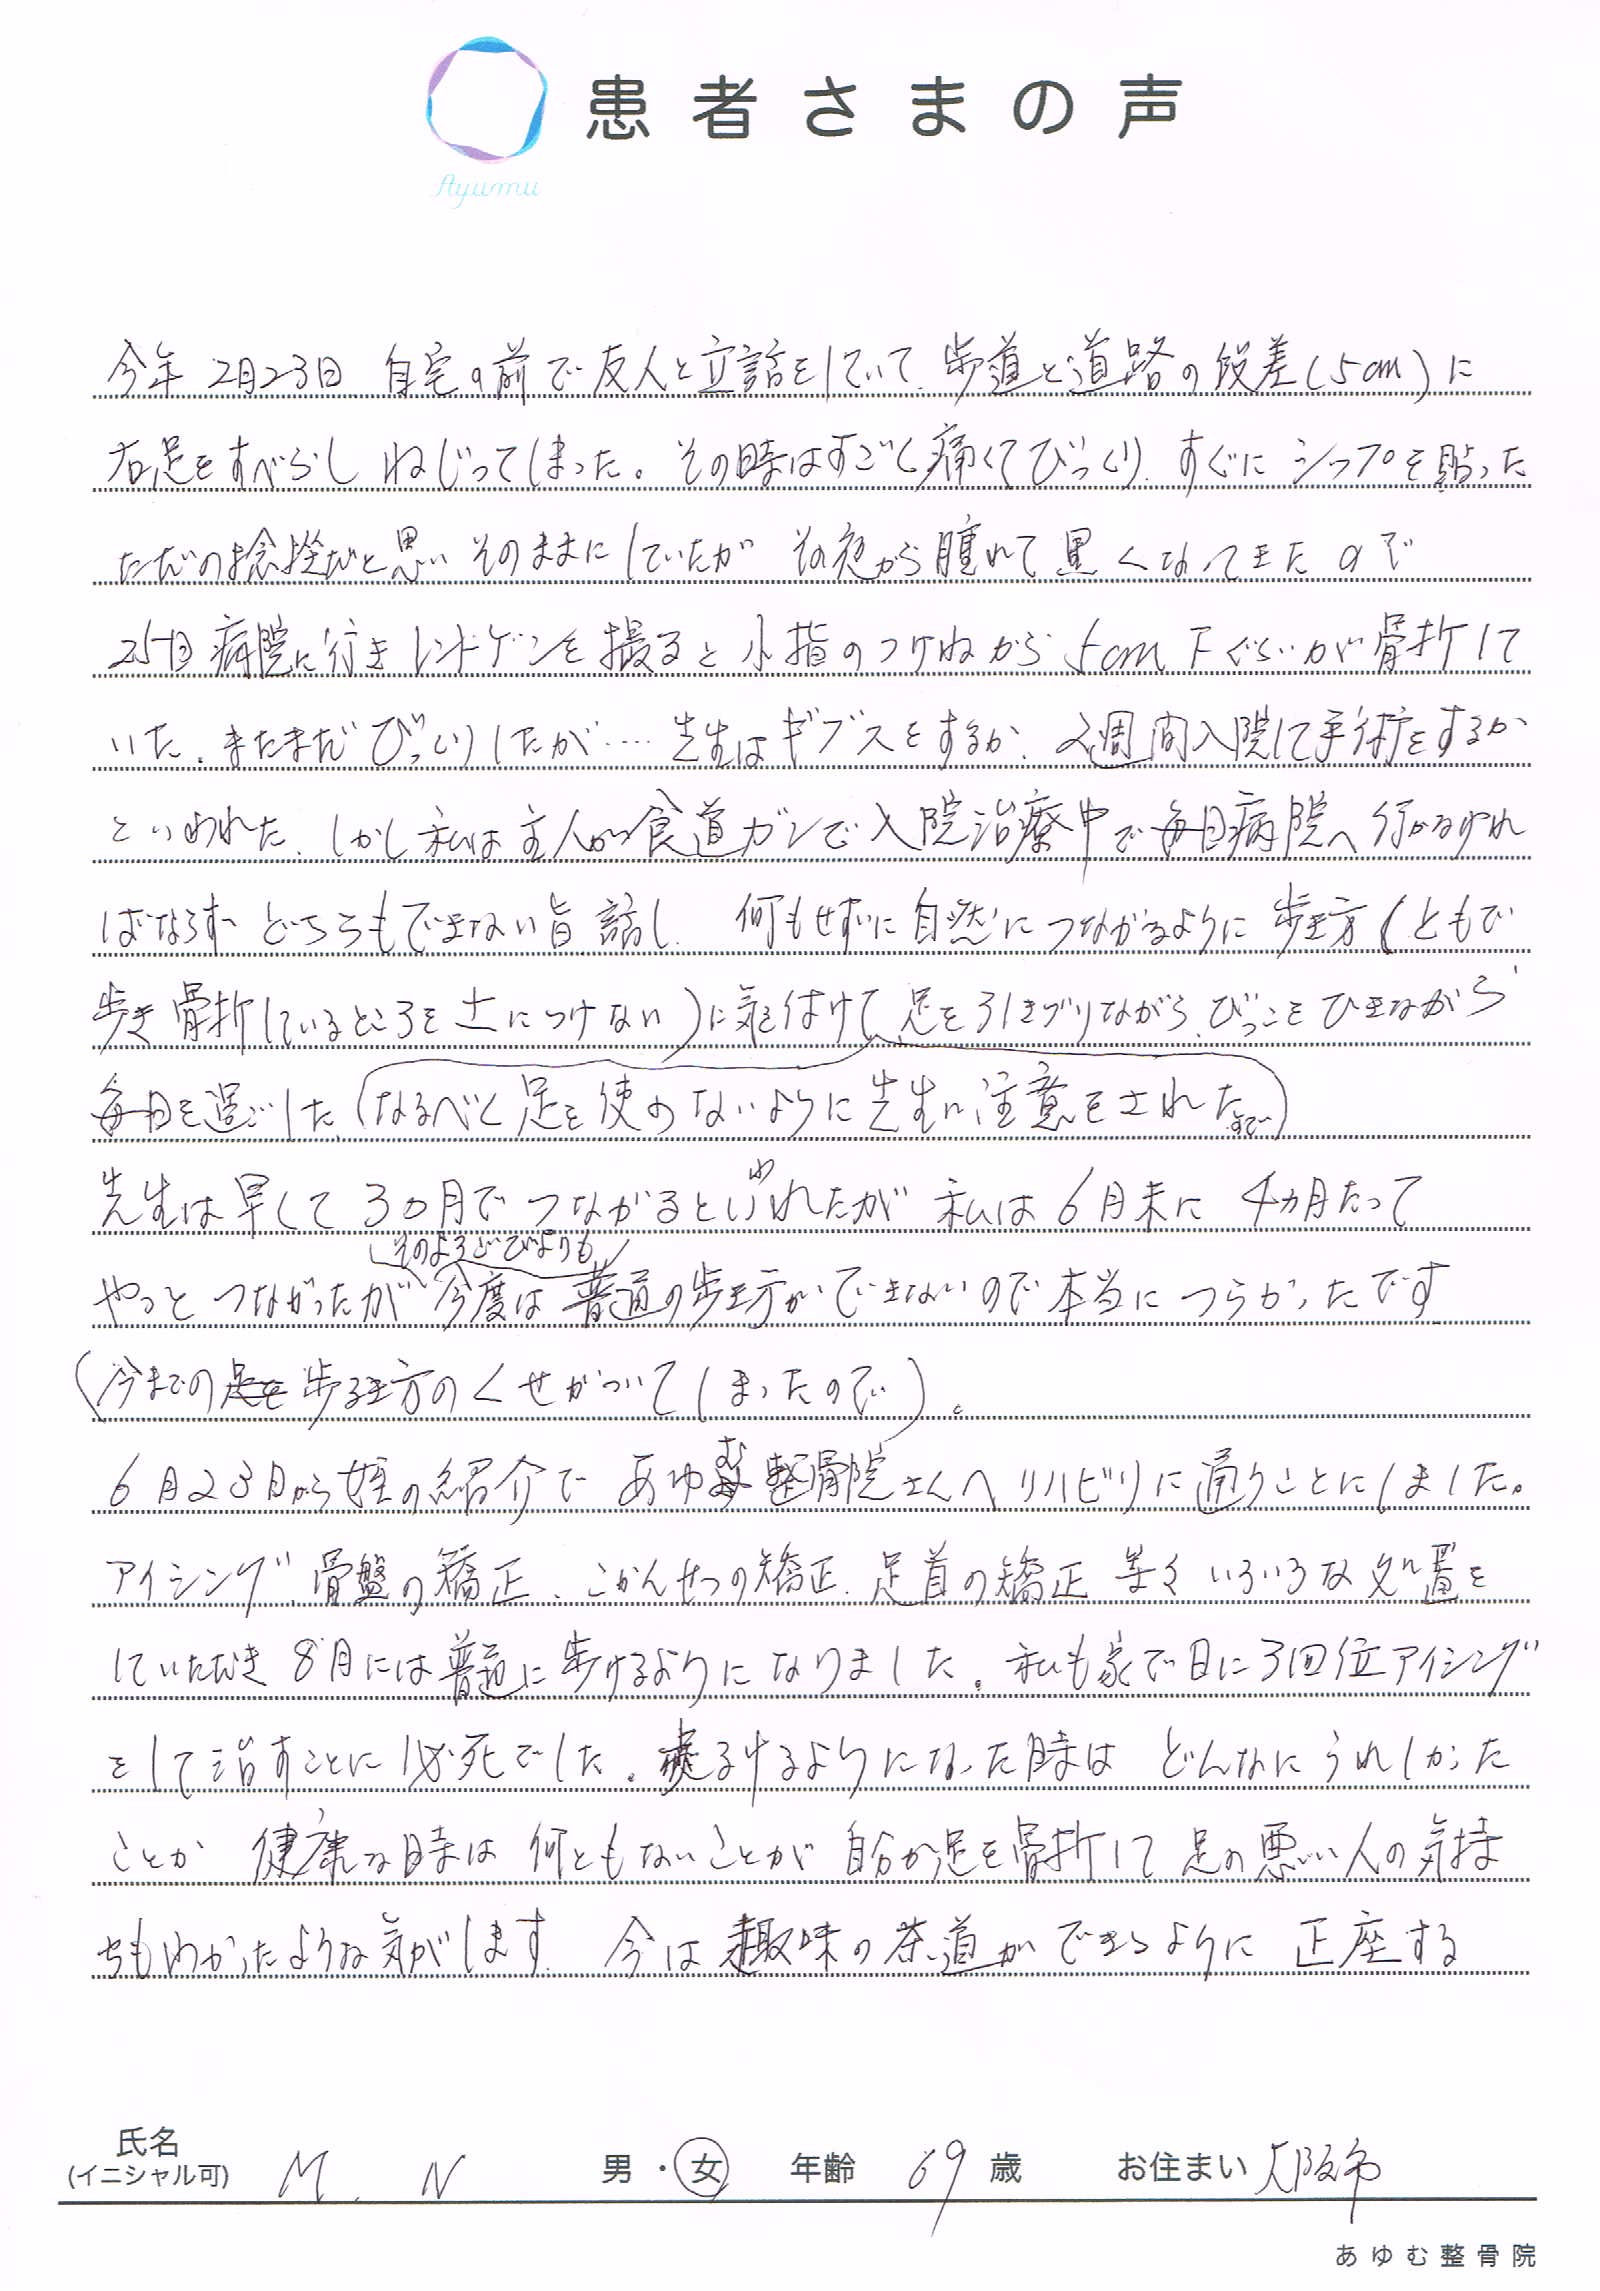 患者さまの声
Ayumu
今年2月23日、自宅の前で友人と立話をしていて、歩道と道路の段差(5cm)に
右足をすべらしねじってしまった。その時はすごく痛くてびっくり、すぐにシップを貼った
ただの捻挫だと思いそのままにしていたが その夜から腫れて黒くなってきたので
25日病院に行きレントゲンを撮ると小指のつけねから5cm下ぐらいが骨折して
いた。またまだびっくりしたが……先生はギブスをするか、2週間入院して手術をするか
といわれた、しかし私は主人が食道ガンで入院治療中で毎日病院へ行かなければ
ばならず どちらもできない旨話し、何もせずに自然につながるように歩き方(ともで
歩き骨折しているところを土につけない)に気を付けて、足を引きづりながら、びっこをひきながら
毎日を過ごした、(なるべく足を使わないように先生に注意をされたまで)
先生は早くて3ヵ月でつながるといわれたが 私は6月末に 4ヵ月たって
そのよろこびよりも
やっとつながったが 今度は普通の歩き方ができないので本当につらかったです
(今までの歩き方のくせがついてしまったので)。
6月28日から姪の紹介で あゆむ整骨院さんへリハビリに通うことにしました。
アイシング、骨盤の矯正、こかんせつの矯正、足首の矯正 等々いろいろな処置を
していただき 8月には普通に歩けるようになりました。私も家で日に3回位アイシング
をして治すことに必死でした。歩けるようになった時は どんなにうれしかった
ことか 健康な時は 何ともないことが 自分が足を骨折して 足の悪い人の気持
ちもわかったような気がします、今は趣味の茶道ができるように 正座する
氏名
(イニシャル可) M. N 男・女 年齢 69歳 お住まい 大阪市
あゆむ整骨院